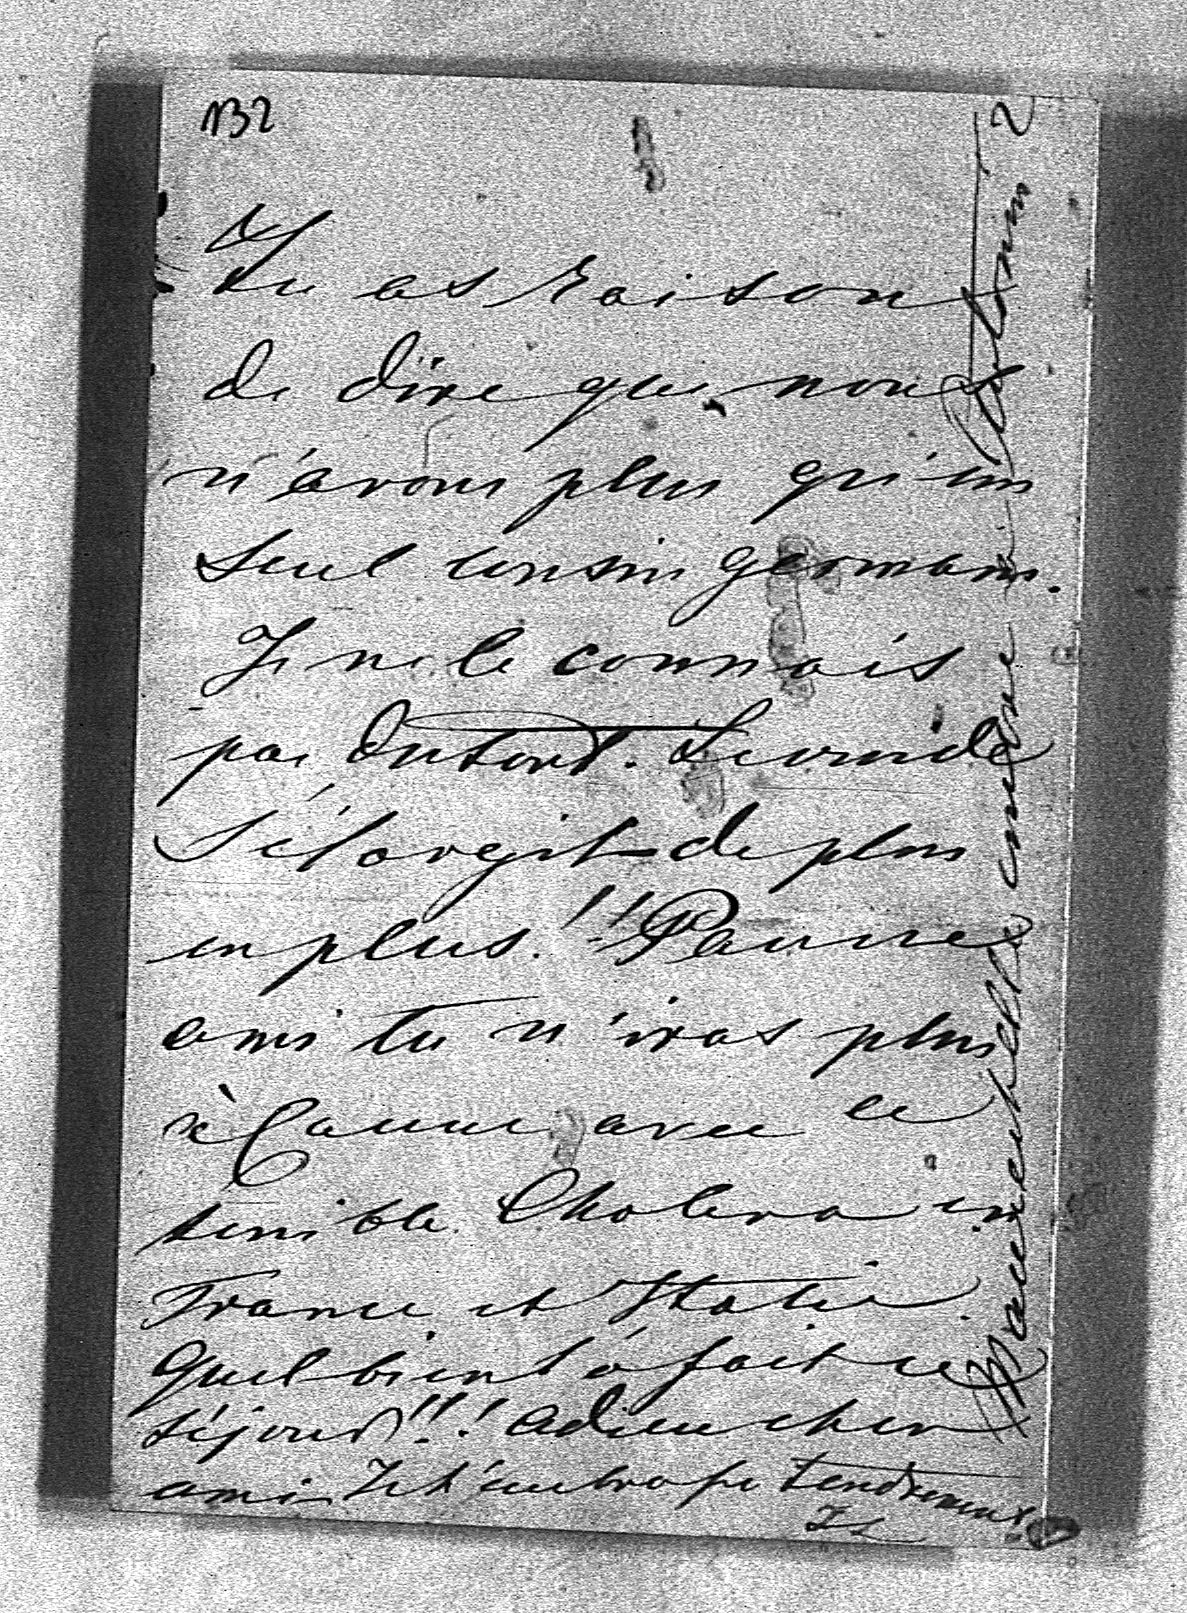 132
tu as raison
de dire que nous
n'avons plus qu'un
seul cousin germain.
Je ne le connais
pas du tout. Le vuide
s'élargit de plus
en plus!!! Pauvre
ami tu n'iras plus
à Canne avec ce
terrible Cholera en
France et Italie.
Quel bien t'a fait ce
séjour!!! adieu cher
ami Je t'embrasse tendrement.